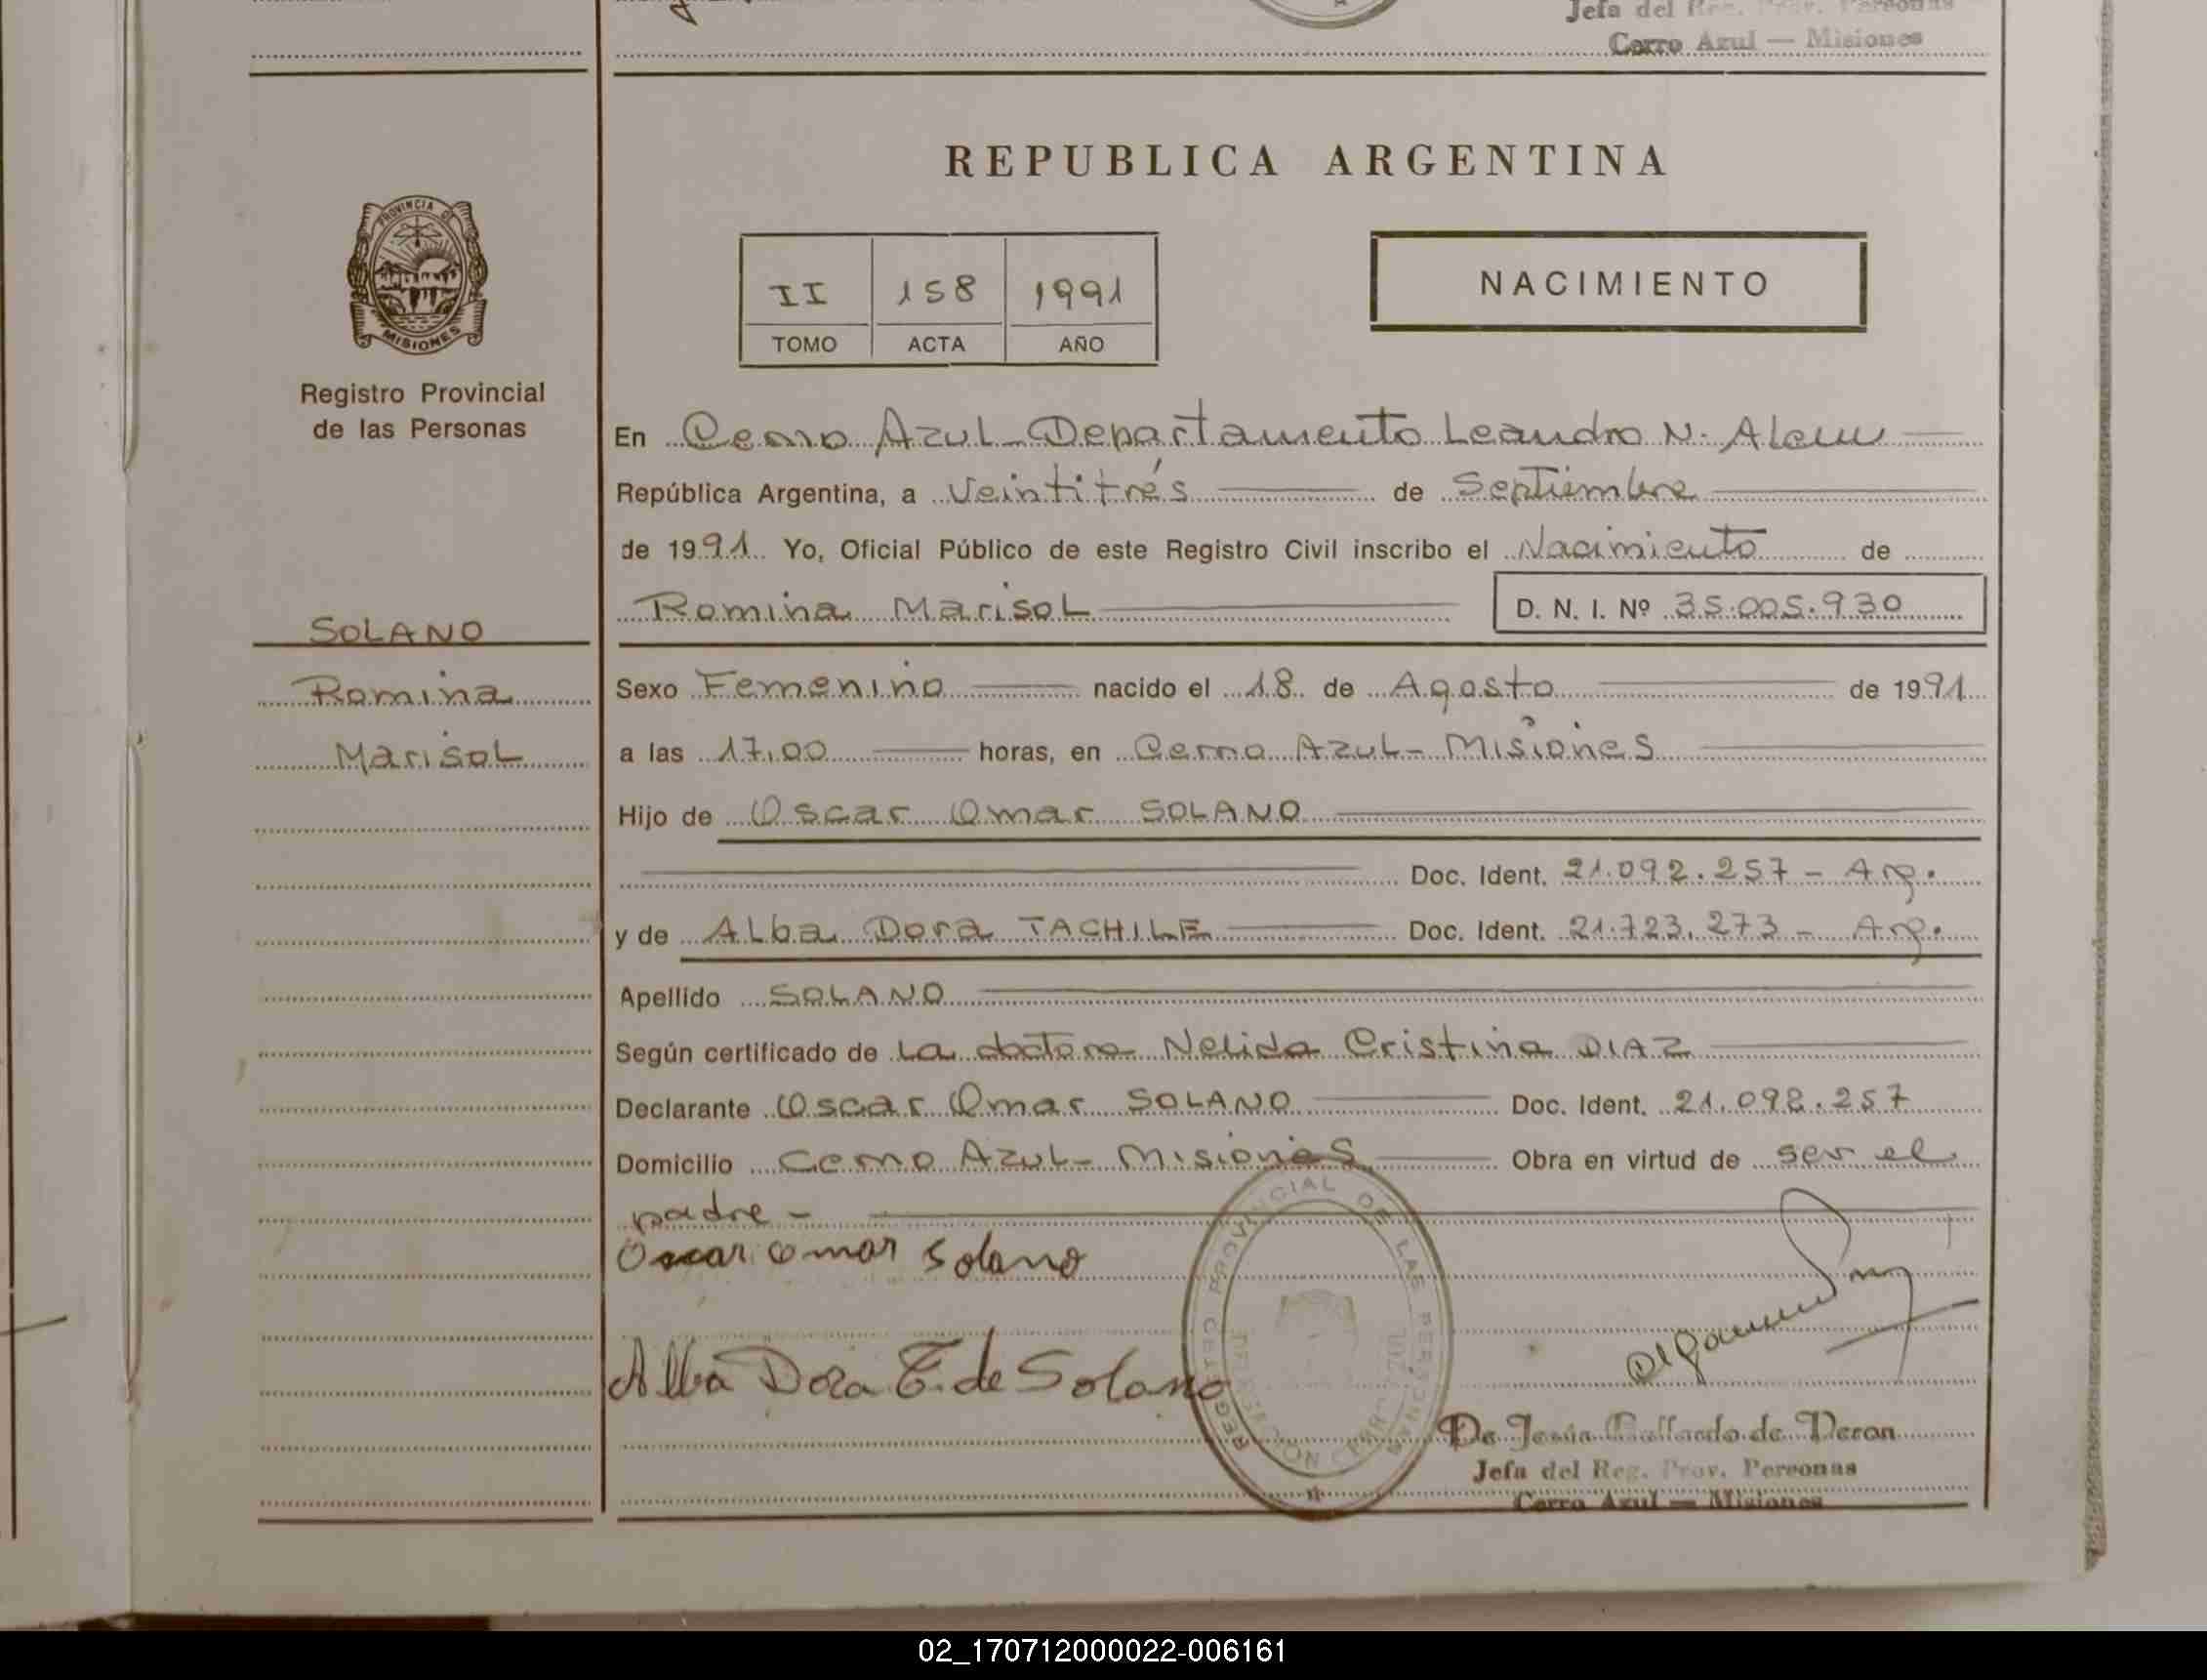 Jefa del Reg. Prov. Personas
Cerro Azul — Misiones
REPUBLICA ARGENTINA
PROVINCIA DE
MISIONES
II 158 1991
TOMO ACTA AÑO
NACIMIENTO
Registro Provincial
de las Personas
En Cerro Azul - Departamento Leandro N. Alem
República Argentina, a Veintitrés de Septiembre
de 1991. Yo, Oficial Público de este Registro Civil inscribo el Nacimiento de
Romina Marisol D. N. I. Nº 35.005.930
SOLANO
Romina
Marisol
Sexo Femenino nacido el 18 de Agosto de 1991
a las 17,00 horas, en Cerro Azul - Misiones
Hijo de Oscar Omar SOLANO
Doc. Ident. 21.092.257 - Arg.
y de Alba Dora TACHILE Doc. Ident. 21.723.273 - Arg.
Apellido SOLANO
Según certificado de La doctora Nelida Cristina DIAZ
Declarante Oscar Omar SOLANO Doc. Ident. 21.092.257
Domicilio Cerro Azul - Misiones Obra en virtud de ser el
padre -
Oscar omar Solano
Alba Dora T. de Solano
REGISTRO PROVINCIAL DE LAS PERSONAS
De Jesús Gallardo de Deron
Jefa del Reg. Prov. Personas
Cerro Azul — Misiones
02_170712000022-006161